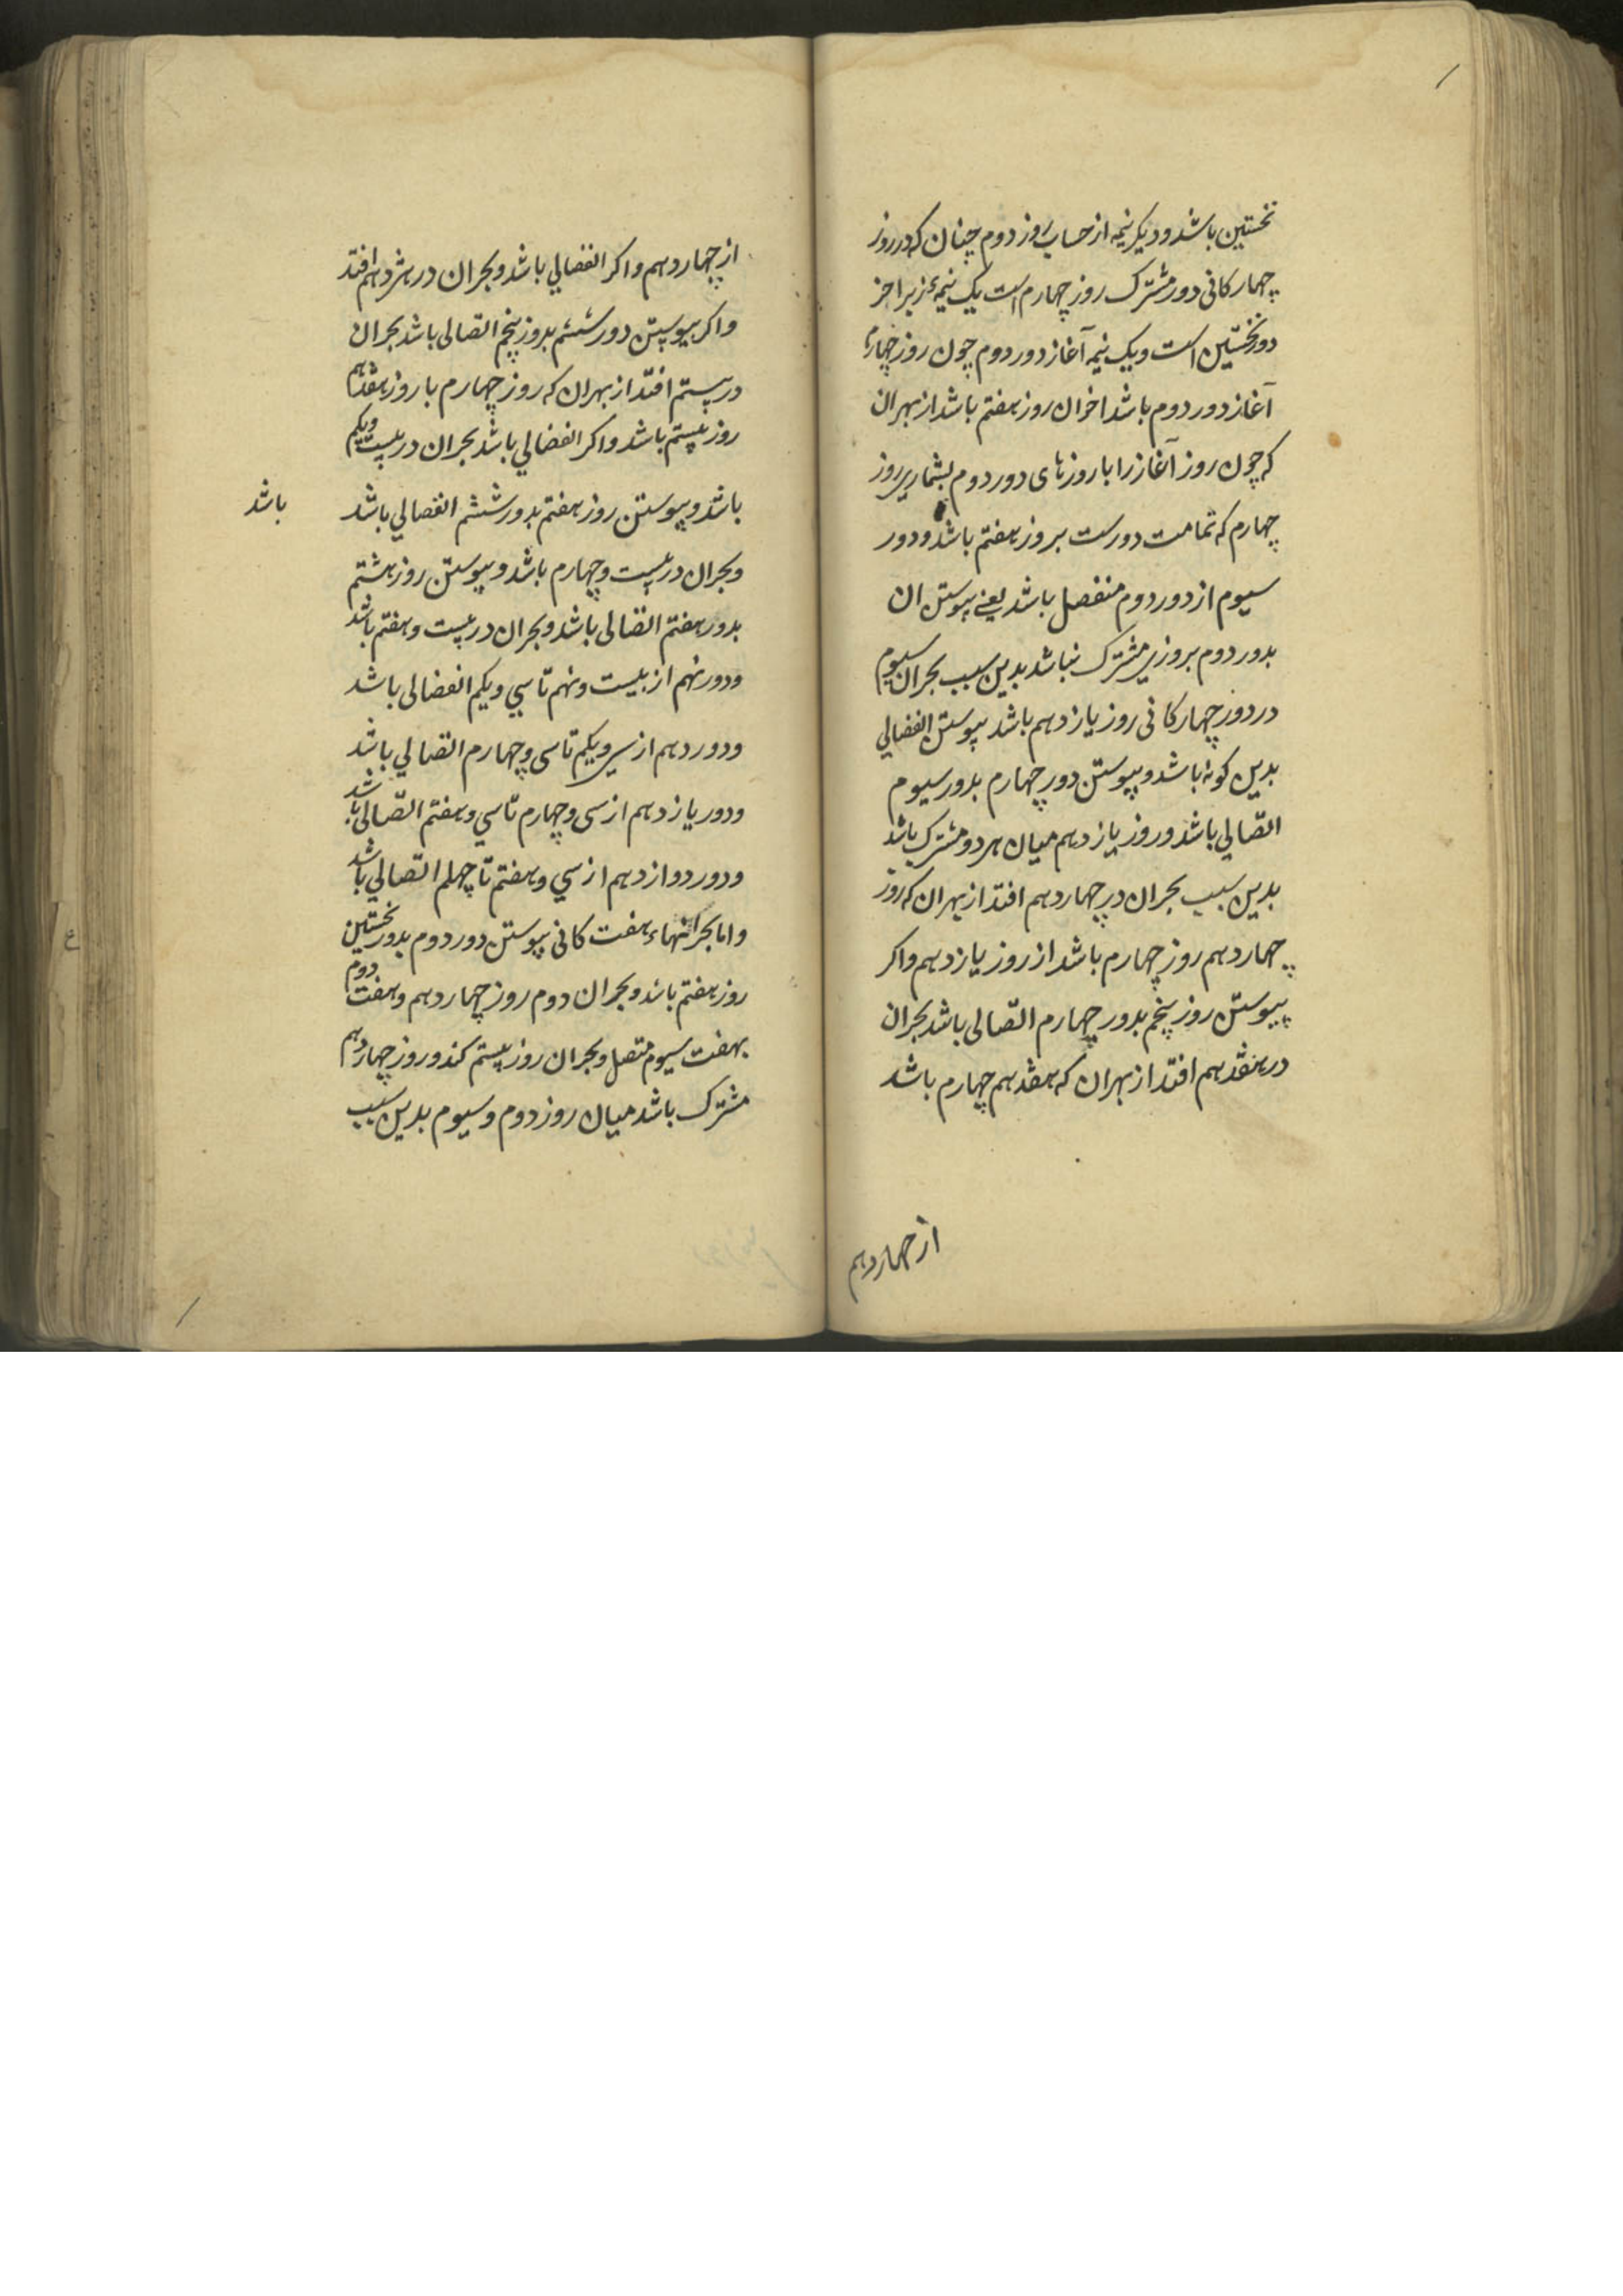 نخستین باشد و دیکر نیمه از حساب روز دوم چنان که در روز
چهارکانی دور مشترک روز چهارم است یک نیمهٔ زیر اخر
دور نخستین است و یک نیمه آغاز دور دوم چون روز چهارم
آغاز دور دوم باشد اخر ان روز هفتم باشد از بهر ان
که چون روز آغاز را با روزهای دور دوم بشماری روز
چهارم که تمامت دورست بروز هفتم باشد و دور
سیوم از دور دوم منفصل باشد یعنی پیوستن ان
بدور دوم بروزی مشترک نباشد بدین سبب بحران سیوم
در دور چهارکانی روز یازدهم باشد پیوستن انفصالی
بدین کونه باشد و پیوستن دور چهارم بدور سیوم
اتصالی باشد و روز یازدهم میان هر دو مشترک باشد
بدین سبب بحران در چهاردهم افتد از بهر ان که روز
چهاردهم روز چهارم باشد از روز یازدهم و اکر
پیوستن روز پنجم بدور چهارم اتصالی باشد بحران
در هفدهم افتد از بهر ان که هفدهم چهارم باشد
از چهاردهم
از چهاردهم و اکر انفصالی باشد و بحران در هژدهم افتد
و اکر پیوستن دور ششم بروز پنجم اتصالی باشد بحران
در بیستم افتد از بهر ان که روز چهارم با روز هفدهم
روز بیستم باشد و اکر انفصالی باشد بحران در بیست ویکم
باشد و پیوستن روز هفتم بدور ششم انفصالی باشد
باشد
و بحران در بیست و چهارم باشد و پیوستن روز هشتم
بدور هفتم اتصالی باشد و بحران در بیست و هفتم باشد
و دور نهم از بیست و نهم تا سی ویکم انفصالی باشد
و دور دهم از سی ویکم تا سی و چهارم اتصالی باشد
و دور یازدهم از سی و چهارم تا سی و هفتم اتصالی باشد
و دور دوازدهم از سی و هفتم تا چهلم اتصالی باشد
و اما بحرانهاء هفت کانی پیوستن دور دوم بدور نخستین
روز هفتم باشد و بحران دوم روز چهاردهم و هفت دوم
بهفت سیوم متصل و بحران روز بیستم کند و روز چهاردهم
مشترک باشد میان روز دوم و سیوم بدین سبب